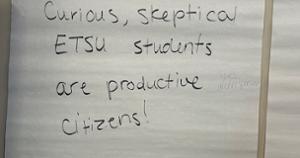 Curious, skeptical
ETSU students
are productive
citizens!